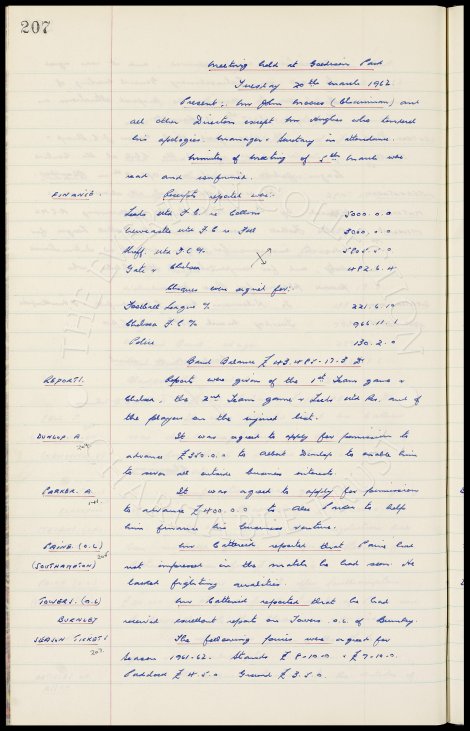 207
Meeting held at Goodison Park
Tuesday 20th March 1962.
Present: Mr John Moores (Chairman) and
all other Directors except Mr Hughes who tendered
his apologies. Manager & Secretary in attendance.
Minutes of Meeting of 6th March were
read and confirmed.
FINANCE. Receipts reported were:-
Leeds Utd F.C. re Collins 5000.0.0
Newcastle Utd F.C. re Fell 5000.0.0
Sheff. Utd F.C. %
Gate v Chelsea 482.6.4
Cheques were signed for:-
Football League % 221.6.10
Chelsea F.C. % 966.11.1
Police 130.2.0
Bank Balance £ 43.485-17-3 Dr
REPORTS. Reports were given of the 1st Team game v
Chelsea, the 2nd Team game v Leeds Utd Res. and of
the players on the injured list.
DUNLOP. A. It was agreed to apply for permission to
advance £350.0.0 to Albert Dunlop to enable him
to sever all outside business interests.
PARKER. A. It was agreed to apply for permission
to advance £400.0.0 to Alex Parker to help
him finance his business venture.
PAINE. (O.L) Mr Catterick reported that Paine had
(SOUTHAMPTON) not impressed in the match he had seen. He
lacked fighting qualities.
TOWERS. (O.L) Mr Catterick reported that he had
BURNLEY received excellent reports on Towers O.L. of Burnley.
SEASON TICKETS The following prices were agreed for
Season 1961-62. Stands £ 8-10-0 & £ 7-10-0.
Paddock £ 4.5.0 Ground £ 3.5.0.